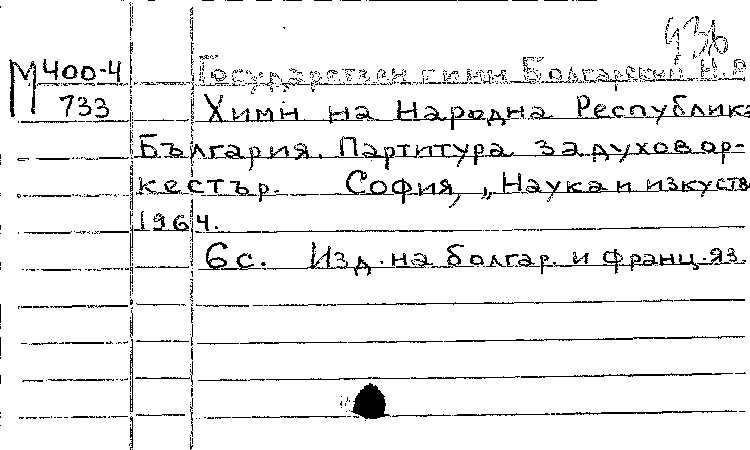 43б
М 400-4
733
Государствен гимн Болгарской Н.Р
Химн на Народна Република
България. Партитура за духов ор-
кестър. София, „Наука и изкуств
1964.
6 с. Изд. на болгар. и франц. яз.